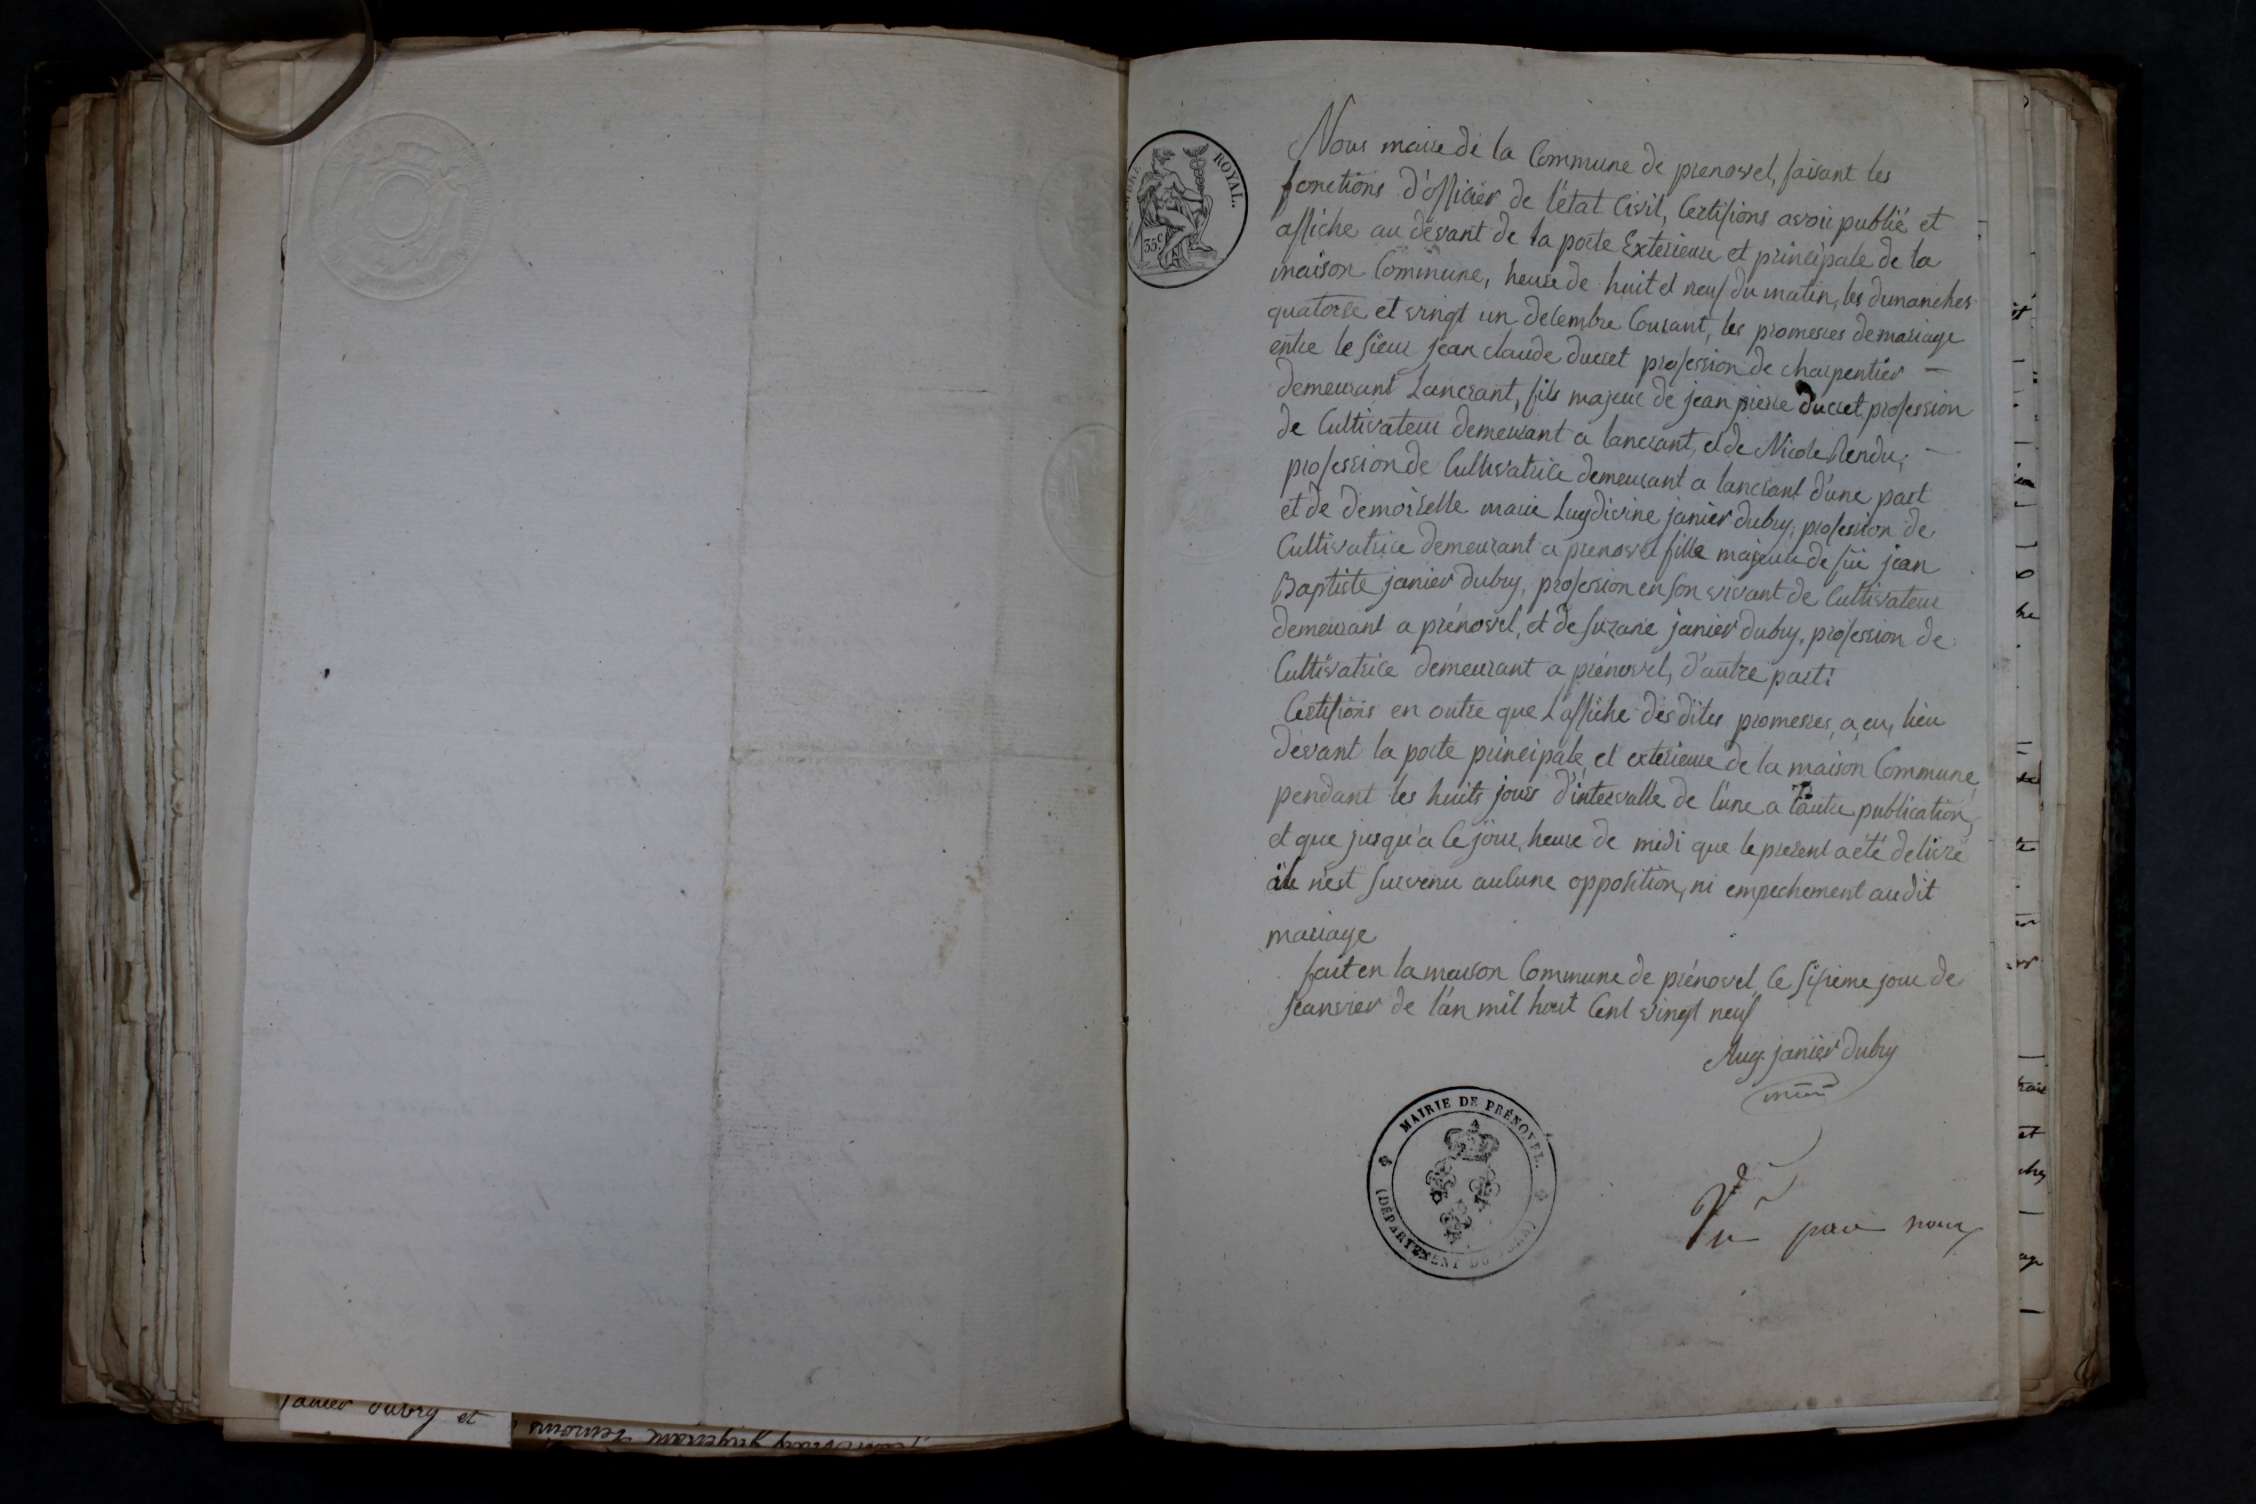 TIMBRE ROYAL.
35.c
Nous maire de la Commune de prenovel, faisant les
fonctions d'officier de l'état Civil, Certifions avoir publié et
affiche au devant de la porte Exterieure et principale de la
maison Commune, heure de huit et neuf du matin, les dimanches
quatorse et vingt un decembre Courant, les promesses de mariage
entre le sieur jean claude ducret profession de charpentier —
demeurant Lancrant, fils majeur de jean pierre ducret, profession
de Cultivateur demeurant a lancrant, et de Nicole Rendu, —
profession de Cultivatrice demeurant a lancrant d'une part
et de demoiselle marie Lugdivine janier dubry, profession de
Cultivatrice demeurant a prenovel fille majeure de fûë jean
Baptiste janier dubry, profession en son vivant de Cultivateur
demeurant a prénovel, et de suzane janier dubry, profession de
Cultivatrice demeurant a prénovel, d'autre part:
Certifions en outre que L'affiche des dites promesses, a eu, lieu
devant la porte principale et exterieure de la maison Commune,
pendant les huits jours d'intervalle de l'une a l'autre publication,
et que jusqu'a ce jour, heure de midi que le present a été delivré
il n'est survenu aucune opposition, ni empechement audit
mariage
fait en la maison Commune de prénovel, le sixieme jour de
jeanvier de l'an mil huit Cent vingt neuf
Aug. janier dubry
MAIRIE DE PRÉNOVEL.
(DÉPARTEMENT DU JURA)
Vu par nous
janier dubry et